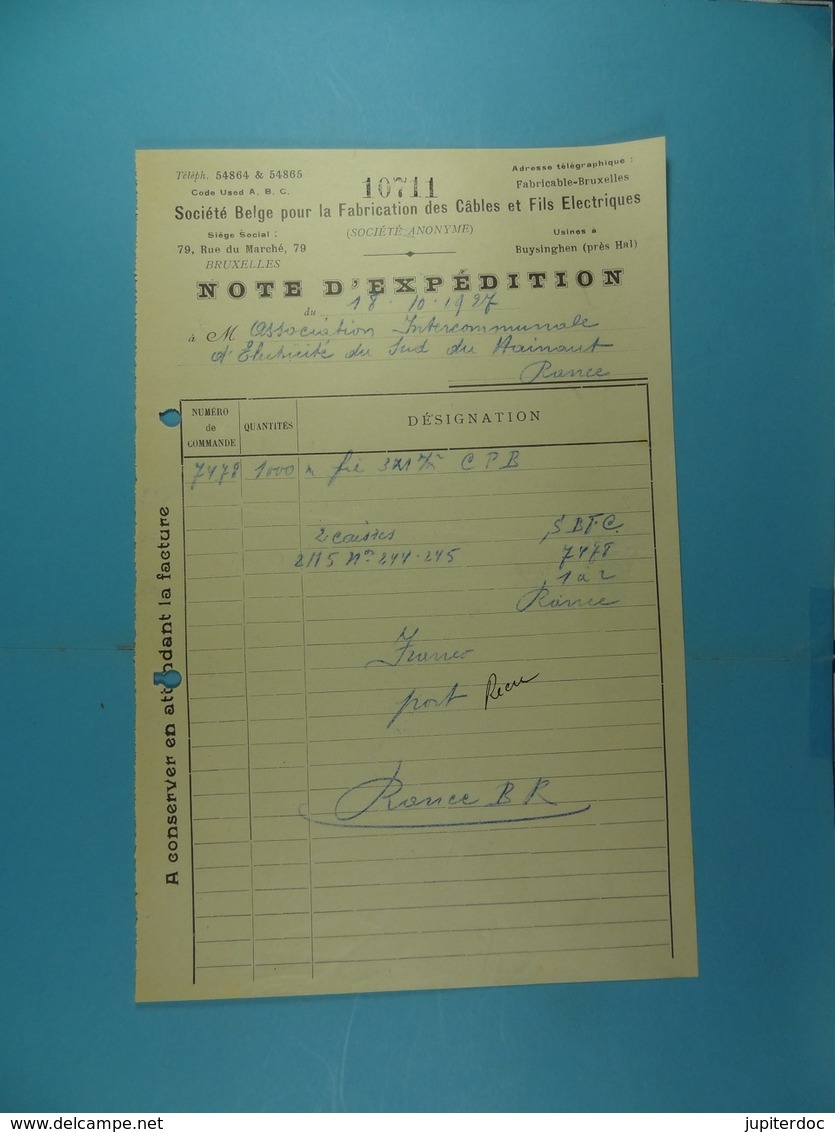 Téléph. 54864 & 54865
Code Used A. B. C.
10711
Adresse télégraphique :
Fabricable-Bruxelles
Société Belge pour la Fabrication des Câbles et Fils Electriques
Siége Social :
79, Rue du Marché, 79
BRUXELLES
(SOCIÉTÉ ANONYME)
Usines à
Buysinghen (près Hal)
NOTE D'EXPÉDITION
du 18.10.1927
à M Association Intercommunale
d'Electricité du Sud du Hainaut
Rance
NUMÉRO de COMMANDE QUANTITÉS DÉSIGNATION
7478 1000 m C P B
2 caisses S B F. C.
Nos 244-245 7478
1 a 2
Rance
Franco
port Recu
Rance B R
A conserver en attendant la facture
delcampe.net
jupiterdoc